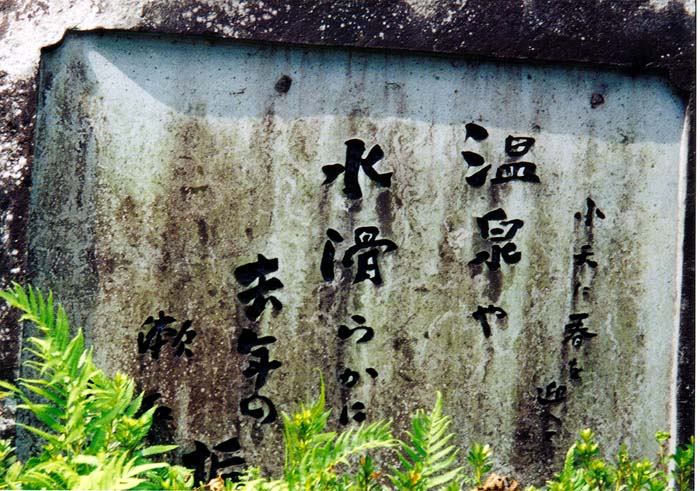 小天に春を迎へて
温泉や
水滑らかに
去年の
垢
漱石